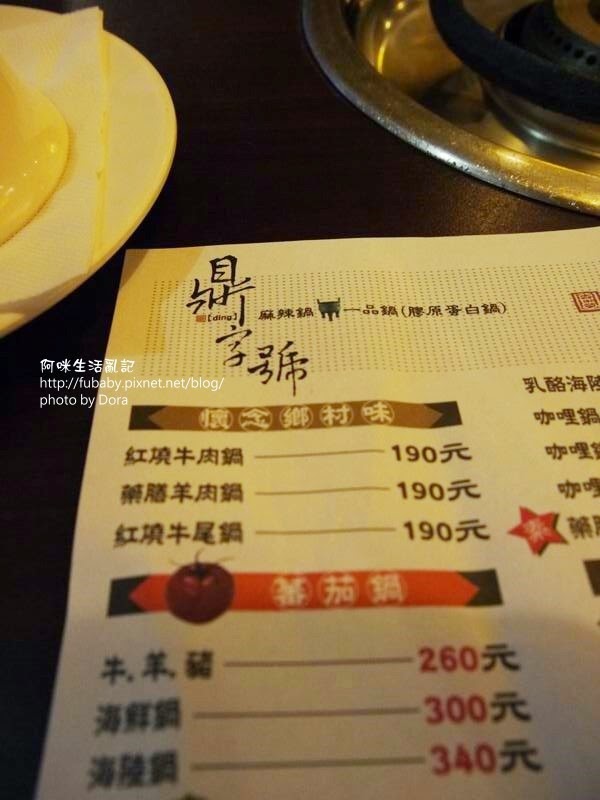 鼎字號
[ding]
麻辣鍋 一品鍋(膠原蛋白鍋)
阿咪生活亂記
http://fubaby.pixnet.net/blog/
photo by Dora
懷念鄉村味
紅燒牛肉鍋 190元
藥膳羊肉鍋 190元
紅燒牛尾鍋 190元
蕃茄鍋
牛.羊.豬 260元
海鮮鍋 300元
海陸鍋 340元
乳酪海陸
咖哩鍋
咖哩
咖哩
素 藥膳